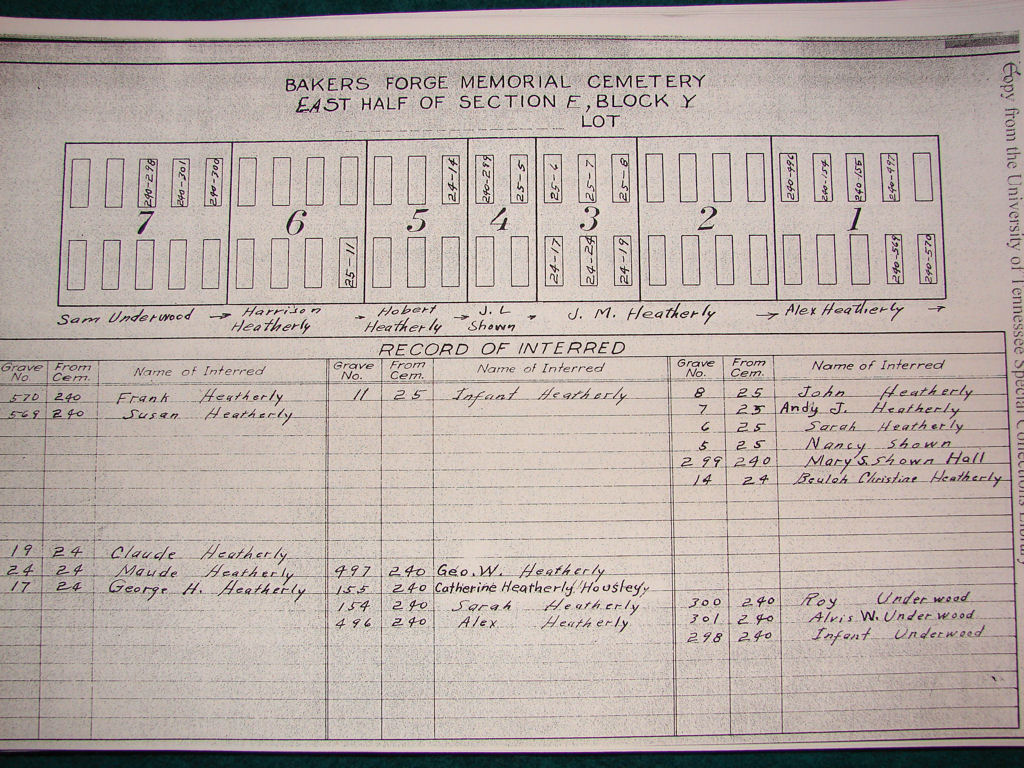 BAKERS FORGE MEMORIAL CEMETERY
EAST HALF OF SECTION F, BLOCK Y
LOT
240-298 240-301 240-300 24-14 240-299 25-5 25-6 25-7 25-8 240-496 240-154 240-155 240-497
7 6 5 4 3 2 1
25-11 24-17 24-24 24-19 240-569 240-570
Sam Underwood → Harrison Heatherly → Hobert Heatherly → J. L Shown → J. M. Heatherly → Alex Heatherly →
RECORD OF INTERRED
Grave No. From Cem. Name of Interred Grave No. From Cem. Name of Interred Grave No. From Cem. Name of Interred
570 240 Frank Heatherly 11 25 Infant Heatherly 8 25 John Heatherly
569 240 Susan Heatherly 7 25 Andy J. Heatherly
6 25 Sarah Heatherly
5 25 Nancy Shown
299 240 Mary S. Shown Hall
14 24 Beulah Christine Heatherly
19 24 Claude Heatherly
24 24 Maude Heatherly 497 240 Geo. W. Heatherly
17 24 George H. Heatherly 155 240 Catherine Heatherly Housley
154 240 Sarah Heatherly 300 240 Roy Underwood
496 240 Alex Heatherly 301 240 Alvis W. Underwood
298 240 Infant Underwood
Copy from the University of Tennessee Special Collections Library